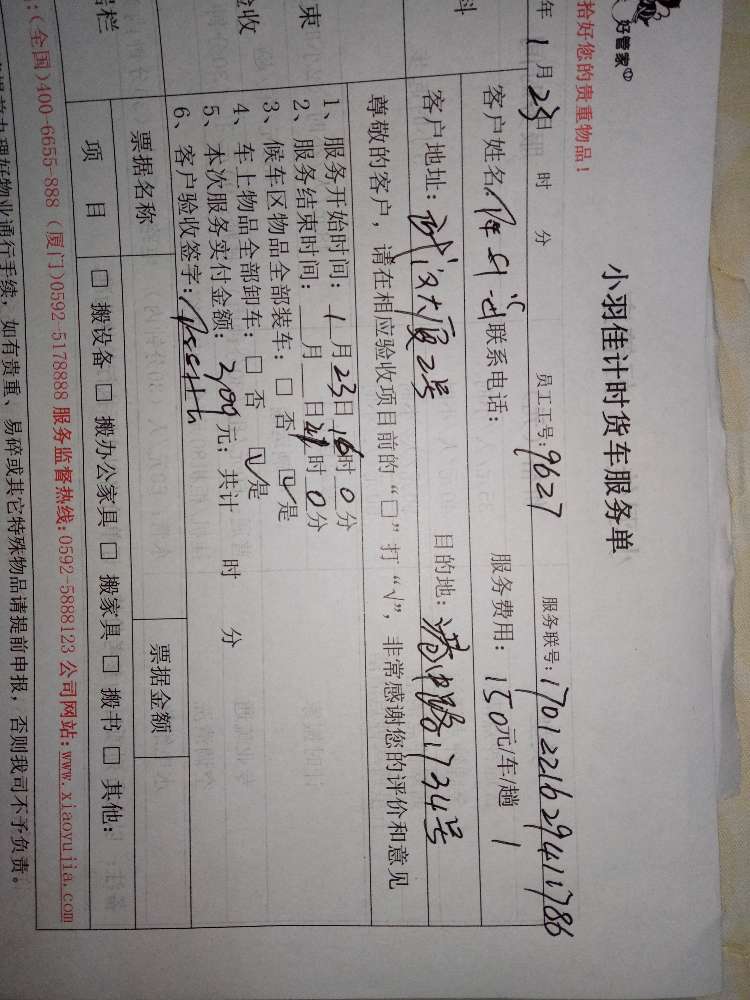 好管家
小羽佳计时货车服务单
拾好您的贵重物品！
年 1 月 23 日 时 分 员工工号：9627 服务联号：1701221629411786
客户姓名： 联系电话： 服务费用：150元/车/趟 1
客户地址：大厦2号 目的地：港中路1734号
尊敬的客户，请在相应验收项目前的“□”打“√”，非常感谢您的评价和意见
束
收
1、服务开始时间：1月23日16时0分
2、服务结束时间：__月__日时0分
3、候车区物品全部装车：□ 否 ☑是
4、车上物品全部卸车：□ 否 ☑是
5、本次服务实付金额：元；共计 时 分
6、客户验收签字：
栏
票据名称 票据金额
项 目 □ 搬设备 □ 搬办公家具 □ 搬家具 □ 搬书 □ 其他：
：(全国)400-6655-888 (厦门)0592-5178888 服务监督热线:0592-5888123 公司网站:www.xiaoyujia.com
办理好物业通行手续，如有贵重、易碎或其它特殊物品请提前申报，否则我司不予负责。